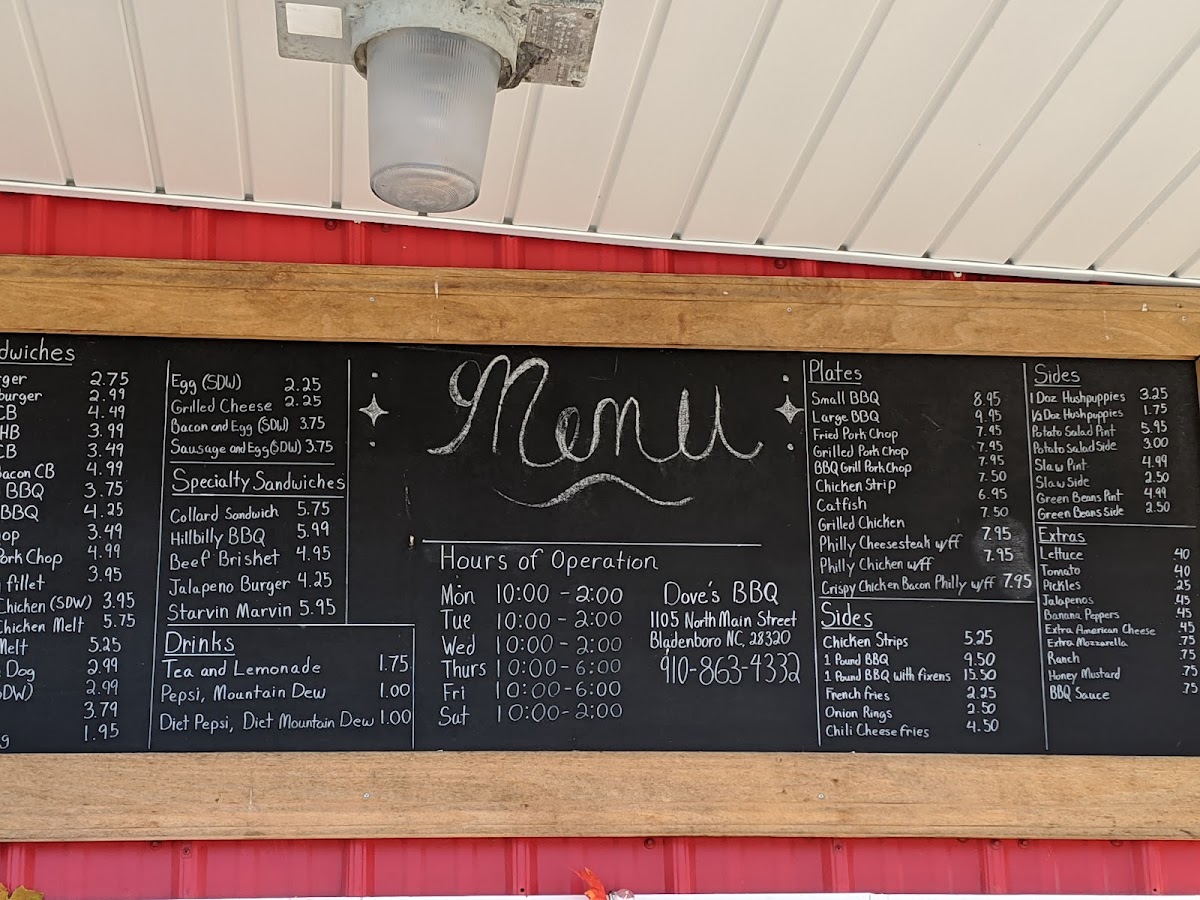 dwiches
rger 2.75
burger 2.99
CB 4.49
HB 3.99
CB 3.49
Bacon CB 4.99
BBQ 3.75
BBQ 4.25
op 3.49
Pork Chop 4.99
fillet 3.95
Chicken (SDW) 3.95
Chicken Melt 5.75
Melt 5.25
Dog 2.99
SDW) 2.99
3.79
g 1.95
Egg (SDW) 2.25
Grilled Cheese 2.25
Bacon and Egg (SDW) 3.75
Sausage and Egg (SDW) 3.75
Specialty Sandwiches
Collard Sandwich 5.75
Hillbilly BBQ 5.99
Beef Brisket 4.95
Jalapeno Burger 4.25
Starvin Marvin 5.95
Drinks
Tea and Lemonade 1.75
Pepsi, Mountain Dew 1.00
Diet Pepsi, Diet Mountain Dew 1.00
Menu
Hours of Operation
Mon 10:00 - 2:00
Tue 10:00 - 2:00
Wed 10:00 - 2:00
Thurs 10:00 - 6:00
Fri 10:00 - 6:00
Sat 10:00 - 2:00
Dove's BBQ
1105 North Main Street
Bladenboro NC, 28320
910-863-4332
Plates
Small BBQ 8.95
Large BBQ 9.95
Fried Pork Chop 7.95
Grilled Pork Chop 7.95
BBQ Grill Pork Chop 7.95
Chicken Strip 7.50
Catfish 6.95
Grilled Chicken 7.50
Philly Cheesesteak w/ff 7.95
Philly Chicken w/ff 7.95
Crispy Chicken Bacon Philly w/ff 7.95
Sides
Chicken Strips 5.25
1 Pound BBQ 9.50
1 Pound BBQ with fixens 15.50
French fries 2.25
Onion Rings 2.50
Chili Cheese fries 4.50
Sides
1 Doz Hushpuppies 3.25
1/2 Doz Hushpuppies 1.75
Potato Salad Pint 5.95
Potato Salad Side 3.00
Slaw Pint 4.99
Slaw Side 2.50
Green Beans Pint 4.99
Green Beans Side 2.50
Extras
Lettuce 40
Tomato .40
Pickles .25
Jalapenos .45
Banana Peppers .45
Extra American Cheese 45
Extra Mozzarella .75
Ranch .75
Honey Mustard .75
BBQ Sauce .75